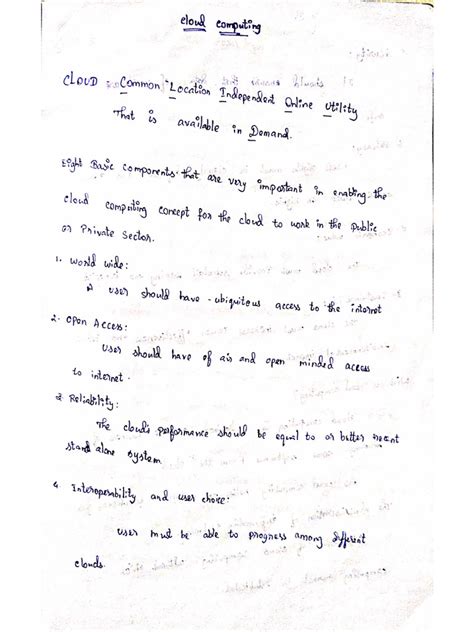 cloud computing
CLOUD : Common Location Independent Online Utility
That is available in Demand.
Eight Basic components that are very important in enabling the
cloud computing concept for the cloud to work in the Public
or Private Sector.
1. World wide:
A user should have ubiquitous access to the internet
2. Open Access:
User should have of air and open minded access
to internet.
3. Reliability:
The cloud's performance should be equal to or better recent
stand alone system
4. Interoperability and user choice:
User must be able to progress among different
clouds.